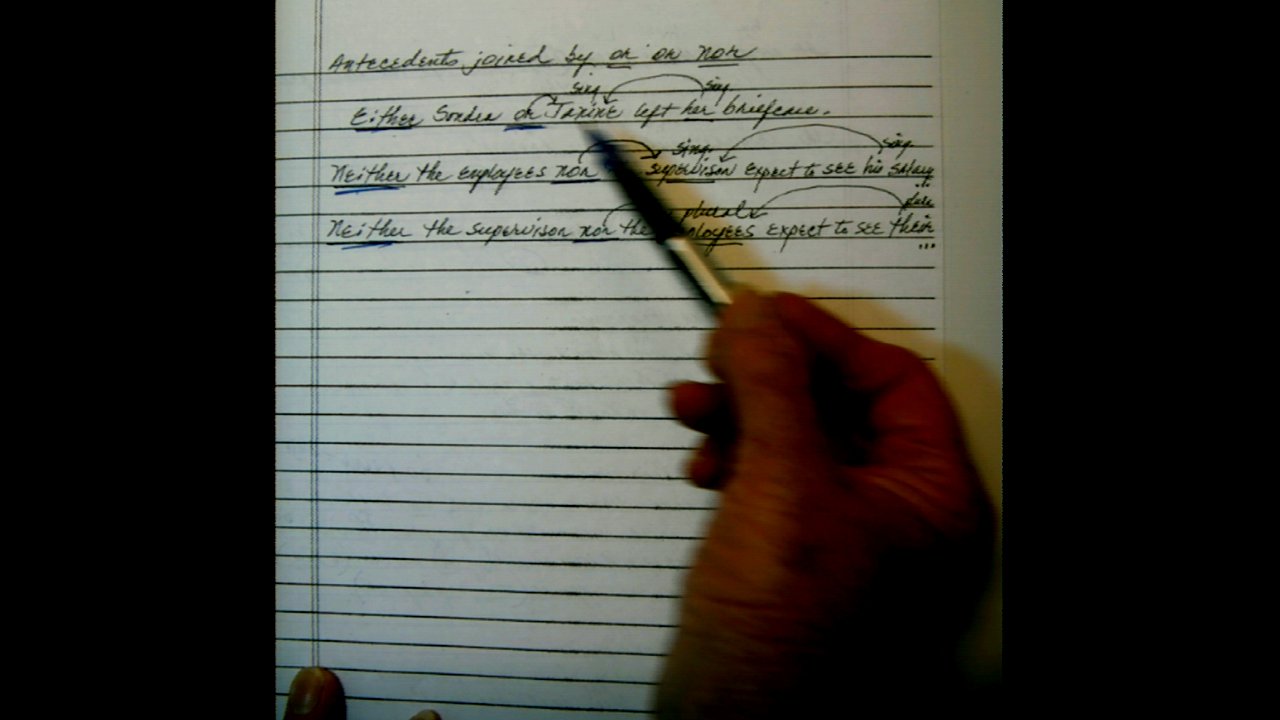 Antecedents joined by or or nor
sing. sing.
Either Sondra or Janine left her briefcase.
sing. sing.
Neither the employees nor supervisor expect to see his salary
...
plural
Neither the supervisor nor the employees expect to see their
...